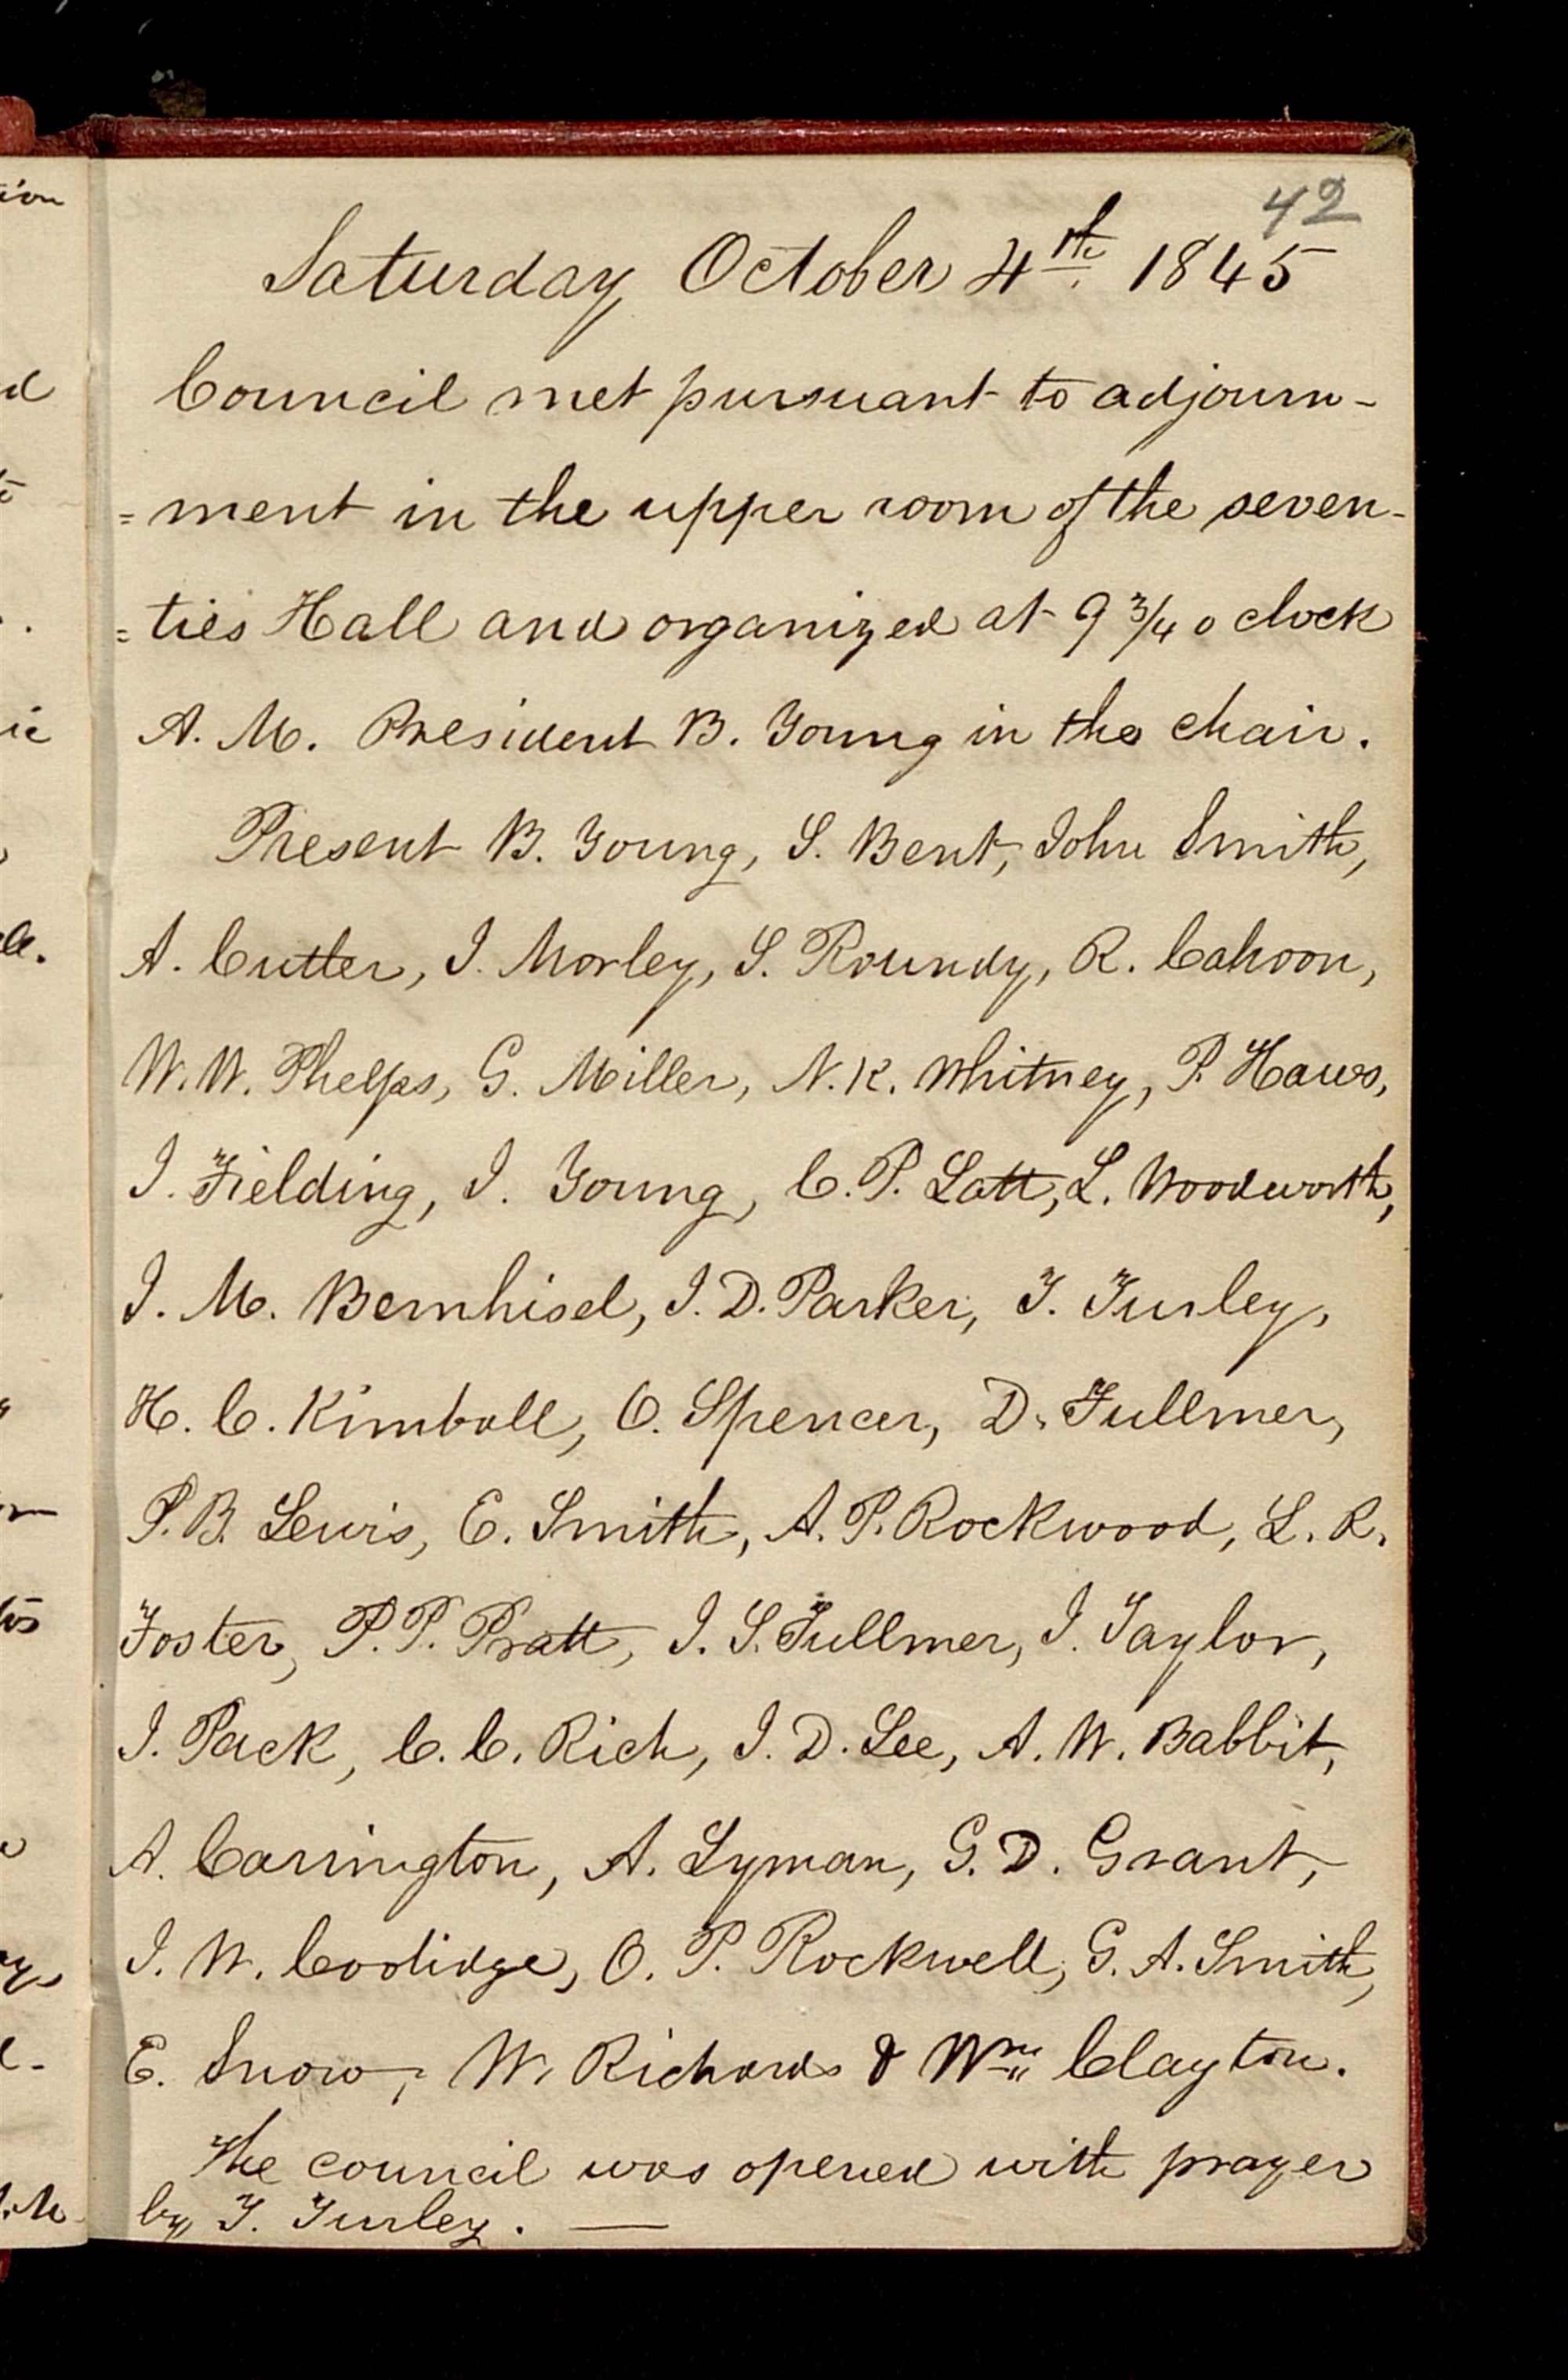 42
Saturday October 4th. 1845
Council met pursuant to adjourn-
=ment in the upper room of the seven-
=ties Hall and organized at 9 3/4 o clock
A. M. President B. Young in the chair.
Present B. Young, S. Bent, John Smith,
A. Cutler, I. Morley, S. Roundy, R. Cahoon,
W. W. Phelps, G. Miller, N. K. Whitney, P. Haws,
J. Fielding, J. Young, C. P. Lott, L. Woodworth,
J. M. Bernhisel, J. D. Parker, T. Turley,
H. C. Kimball, O. Spencer, D. Fullmer,
P. B. Lewis, E. Smith, A. P. Rockwood, L. R.
Foster, P. P. Pratt, J. S. Fullmer, J. Taylor,
J. Pack, C. C. Rich, J. D. Lee, A. W. Babbit,
A. Carrington, A. Lyman, G. D. Grant,
J. W. Coolidge, O. P. Rockwell, G. A. Smith,
E. Snow, W. Richards & Wm Clayton.
The council was opened with prayer
by T. Turley. —